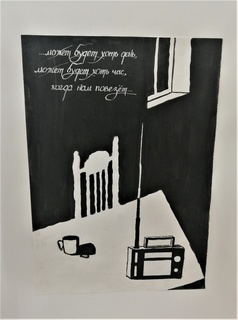 ...может будет хоть день,
может будет хоть час,
когда нам повезёт...